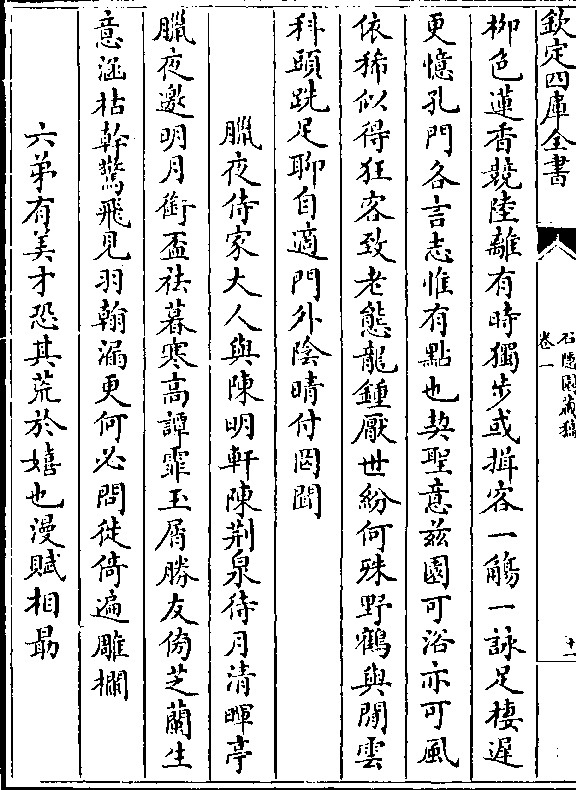 欽定四庫全書
石隱園藏稿
卷一
十一
柳色蓮香競陸離有時獨步或揖客一觴一詠足棲遲
更憶孔門各言志惟有點也契聖意兹園可浴亦可風
依稀似得狂客致老態龍鍾厭世紛何殊野鶴與閒雲
科頭跣足聊自適門外陰晴付罔聞
臘夜侍家大人與陳明軒陳荆泉待月清暉亭
臘夜邀明月銜盃祛暮寒高譚霏玉屑勝友傍芝蘭生
意涵枯幹驚飛見羽翰漏更何必問徙倚遍雕欄
六弟有美才恐其荒於嬉也漫賦相勗